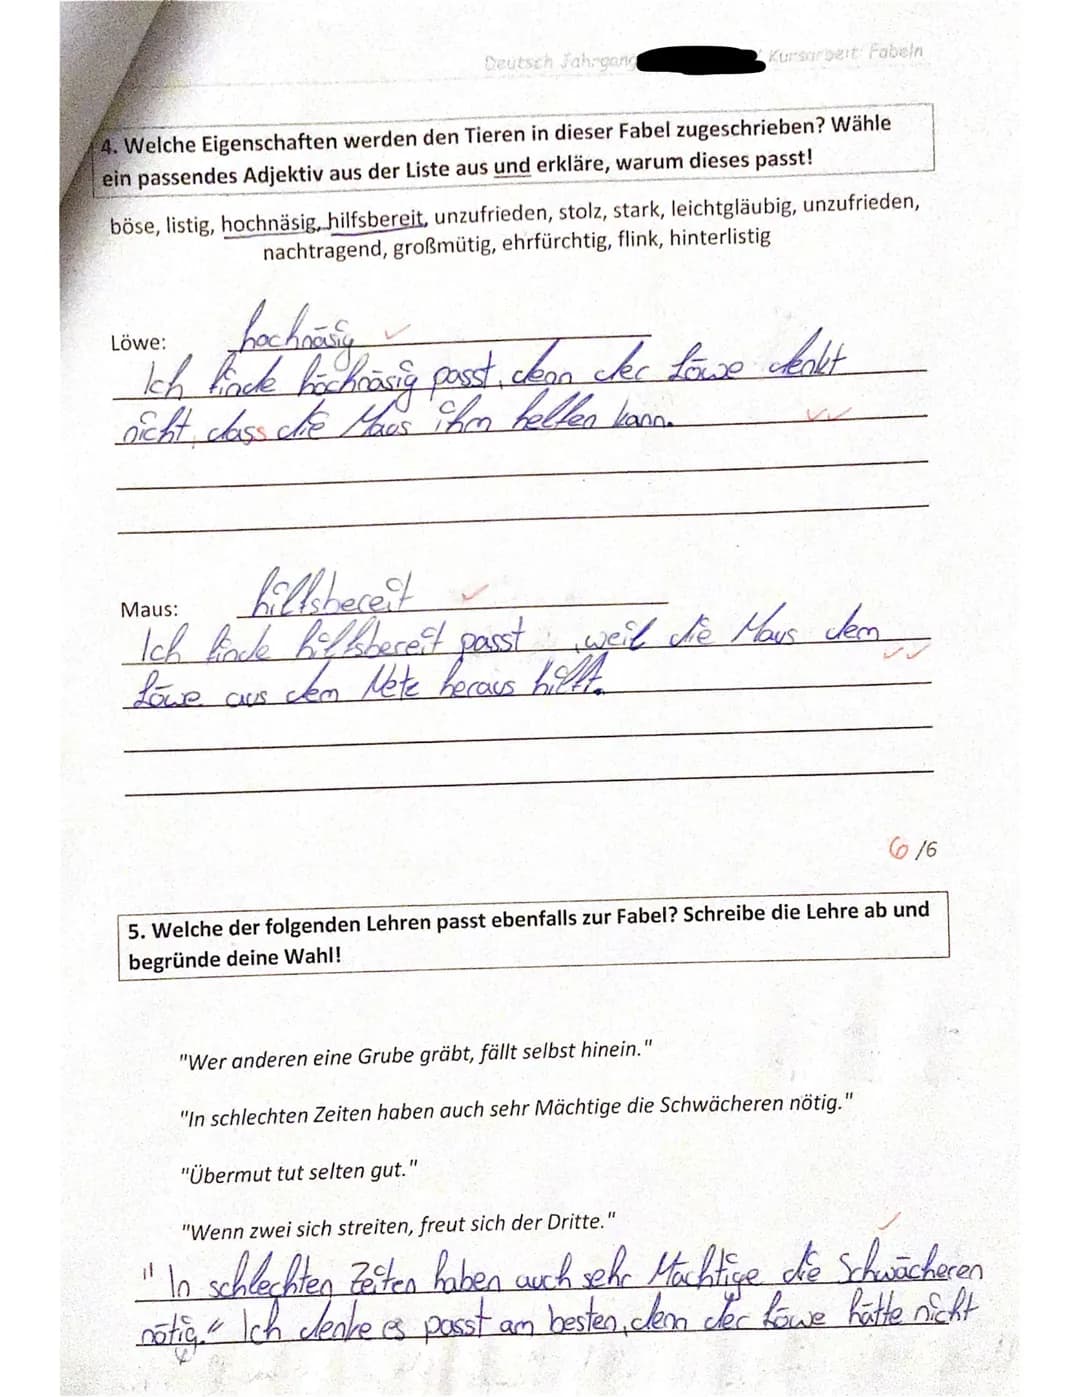 Deutsch Jahrgang Kursarbeit: Fabeln
4. Welche Eigenschaften werden den Tieren in dieser Fabel zugeschrieben? Wähle
ein passendes Adjektiv aus der Liste aus und erkläre, warum dieses passt!
böse, listig, hochnäsig, hilfsbereit, unzufrieden, stolz, stark, leichtgläubig, unzufrieden,
nachtragend, großmütig, ehrfürchtig, flink, hinterlistig
Löwe: hochnäsig
Ich finde hochnäsig passt, denn der Löwe denkt
nicht, dass die Maus ihm helfen kann.
Maus: hilfsbereit
Ich finde hilfsbereit passt, weil die Maus dem
Löwe aus dem Netz heraus hilft.
6/6
5. Welche der folgenden Lehren passt ebenfalls zur Fabel? Schreibe die Lehre ab und
begründe deine Wahl!
"Wer anderen eine Grube gräbt, fällt selbst hinein."
"In schlechten Zeiten haben auch sehr Mächtige die Schwächeren nötig."
"Übermut tut selten gut."
"Wenn zwei sich streiten, freut sich der Dritte."
"In schlechten Zeiten haben auch sehr Mächtige die Schwächeren
nötig." Ich denke es passt am besten, denn der Löwe hätte nicht